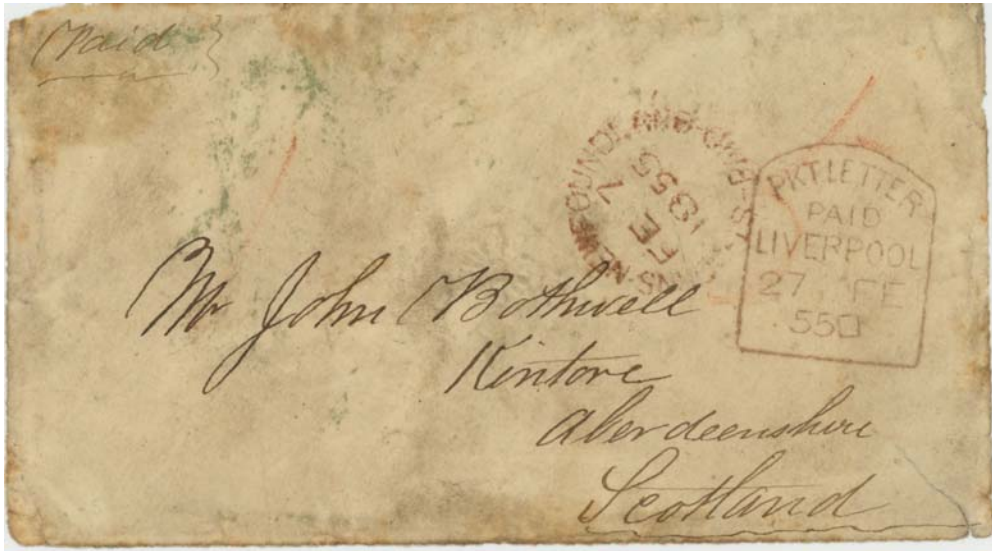 Paid
ST JOHNS-NEWFOUNDLAND
FE 7
1855
PKT LETTER
PAID
LIVERPOOL
27 FE
55
Mr John Bothwell
Kintore
Aberdeenshire
Scotland